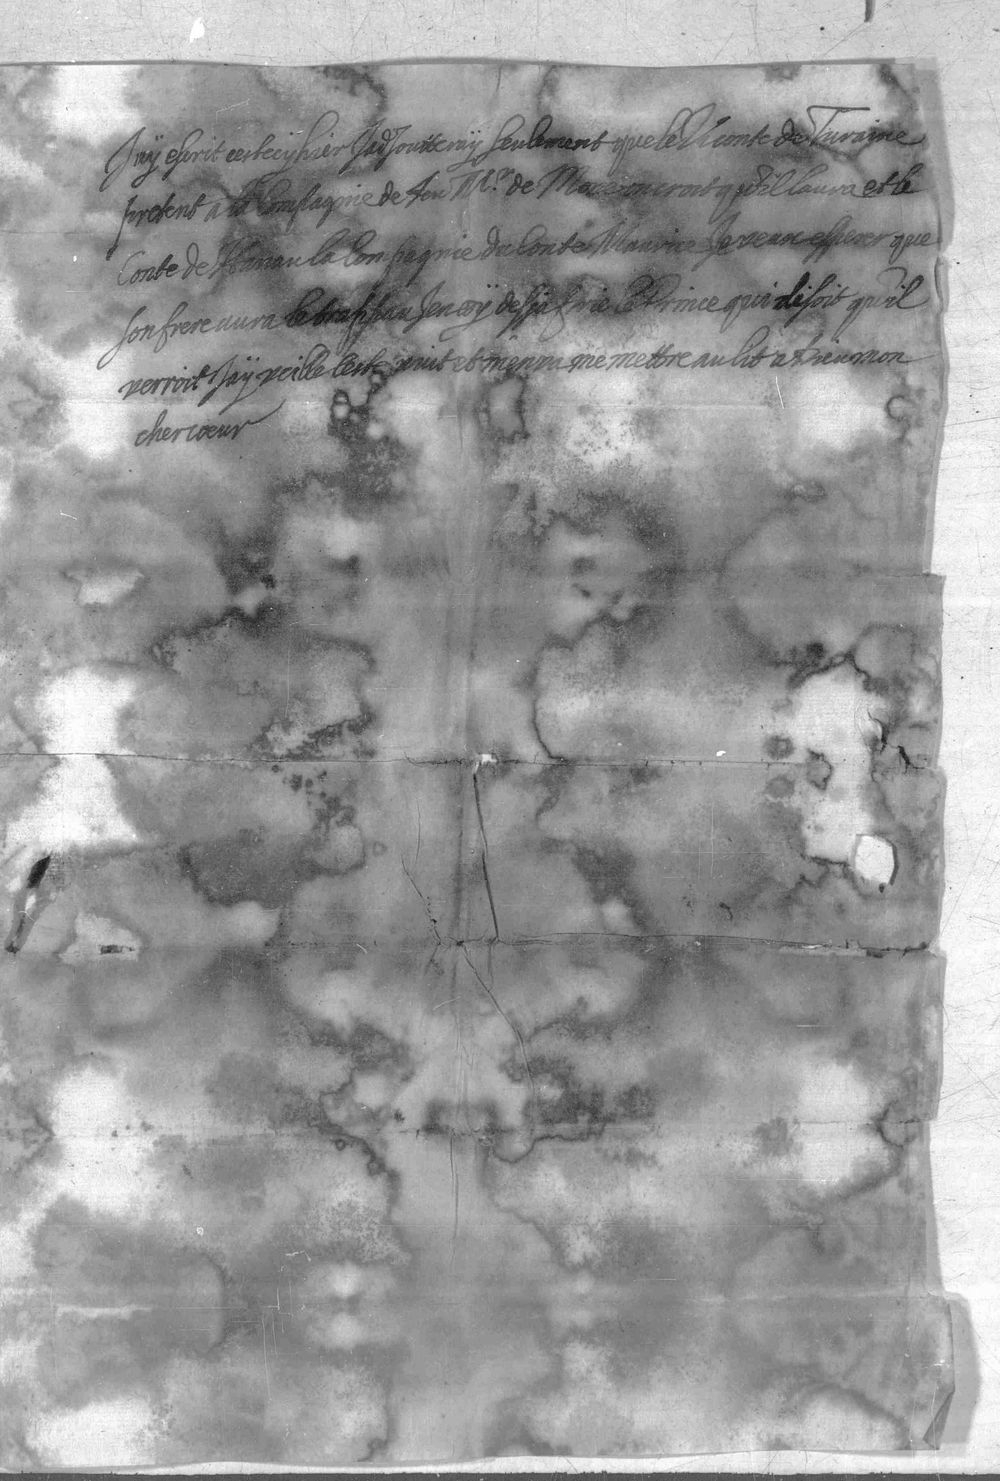 J'aÿ escrit cecy hier J'adjousteraÿ seulement que le Viconte de Turaine
pretent a la Compagnie de feu Mr. de qu'il l'aura et le
Conte de Hanau la Compagnie du Conte Maurice Je veux esperer que
son frere aura le J'en aÿ desja prié le Prince qui disoit qu'il
verroit J'aÿ veillé ceste nuit et m'en va me mettre au lit a Dieu mon
cher coeur